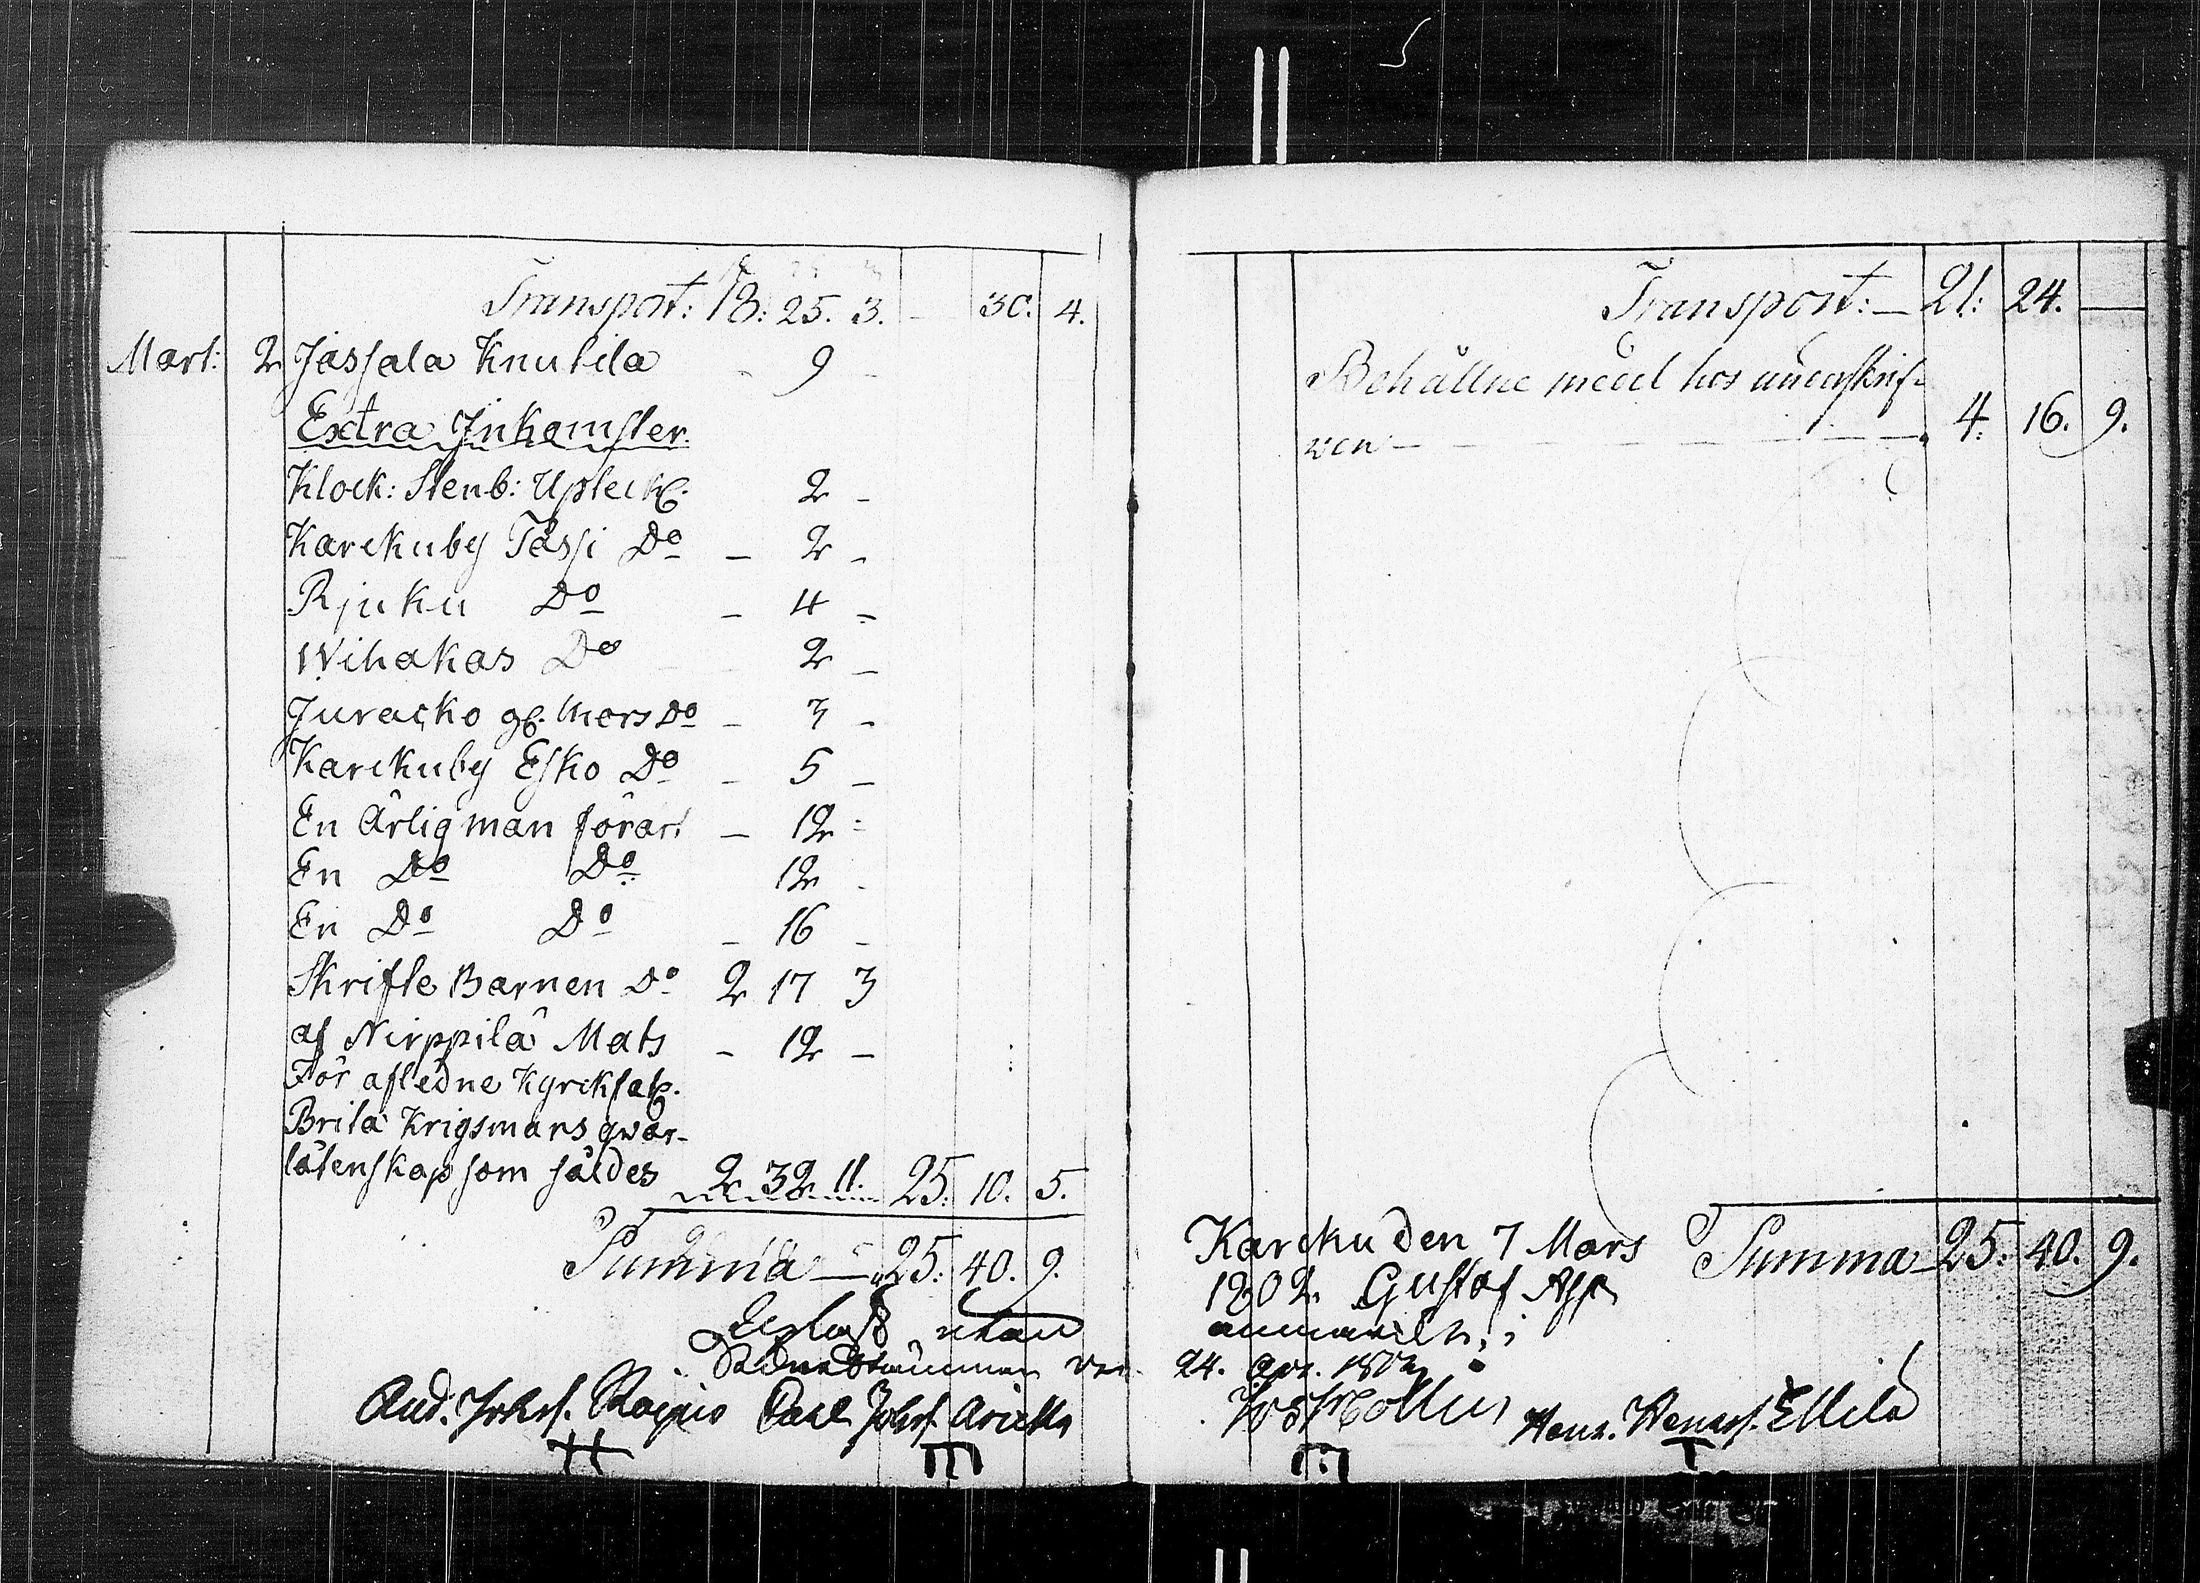 Transport: 18: 25. 3. — 30. 4.
Mart: 2 Jassala Knutila - 9 -
Extra Inkomster.
Klock: Stenb: Upteckg. 2 -
Karckuby Tåssi Do - 2 -
Rjuku Do - 4 -
Wihakas Do - 2 -
Juracko gl. Mors Do - 3 -
Karckuby Esko Do - 5 -
En Ärlig man förärt - 12 -
En Do Do 12 -
En Do Do - 16 -
Skrifte Barnen Do 2 17 3
af Nirppilä Mats - 12 -
För afledne Kyrckfatg.
Brita Krigsmans qwar-
låtenskap som såldes 2 32 11. 25. 10. 5.
Summa — 25. 40. 9.
utan
And. Johss. Carl Johss.
Transport: — 21: 24. —
Behållne medel hos underskrif-
wen — 4. 16. 9.
Summa 25: 40. 9.
Karcku den 7 Mars
1802. Gustaf Asp
24. 1802
Henr. Henrss. Ellilä